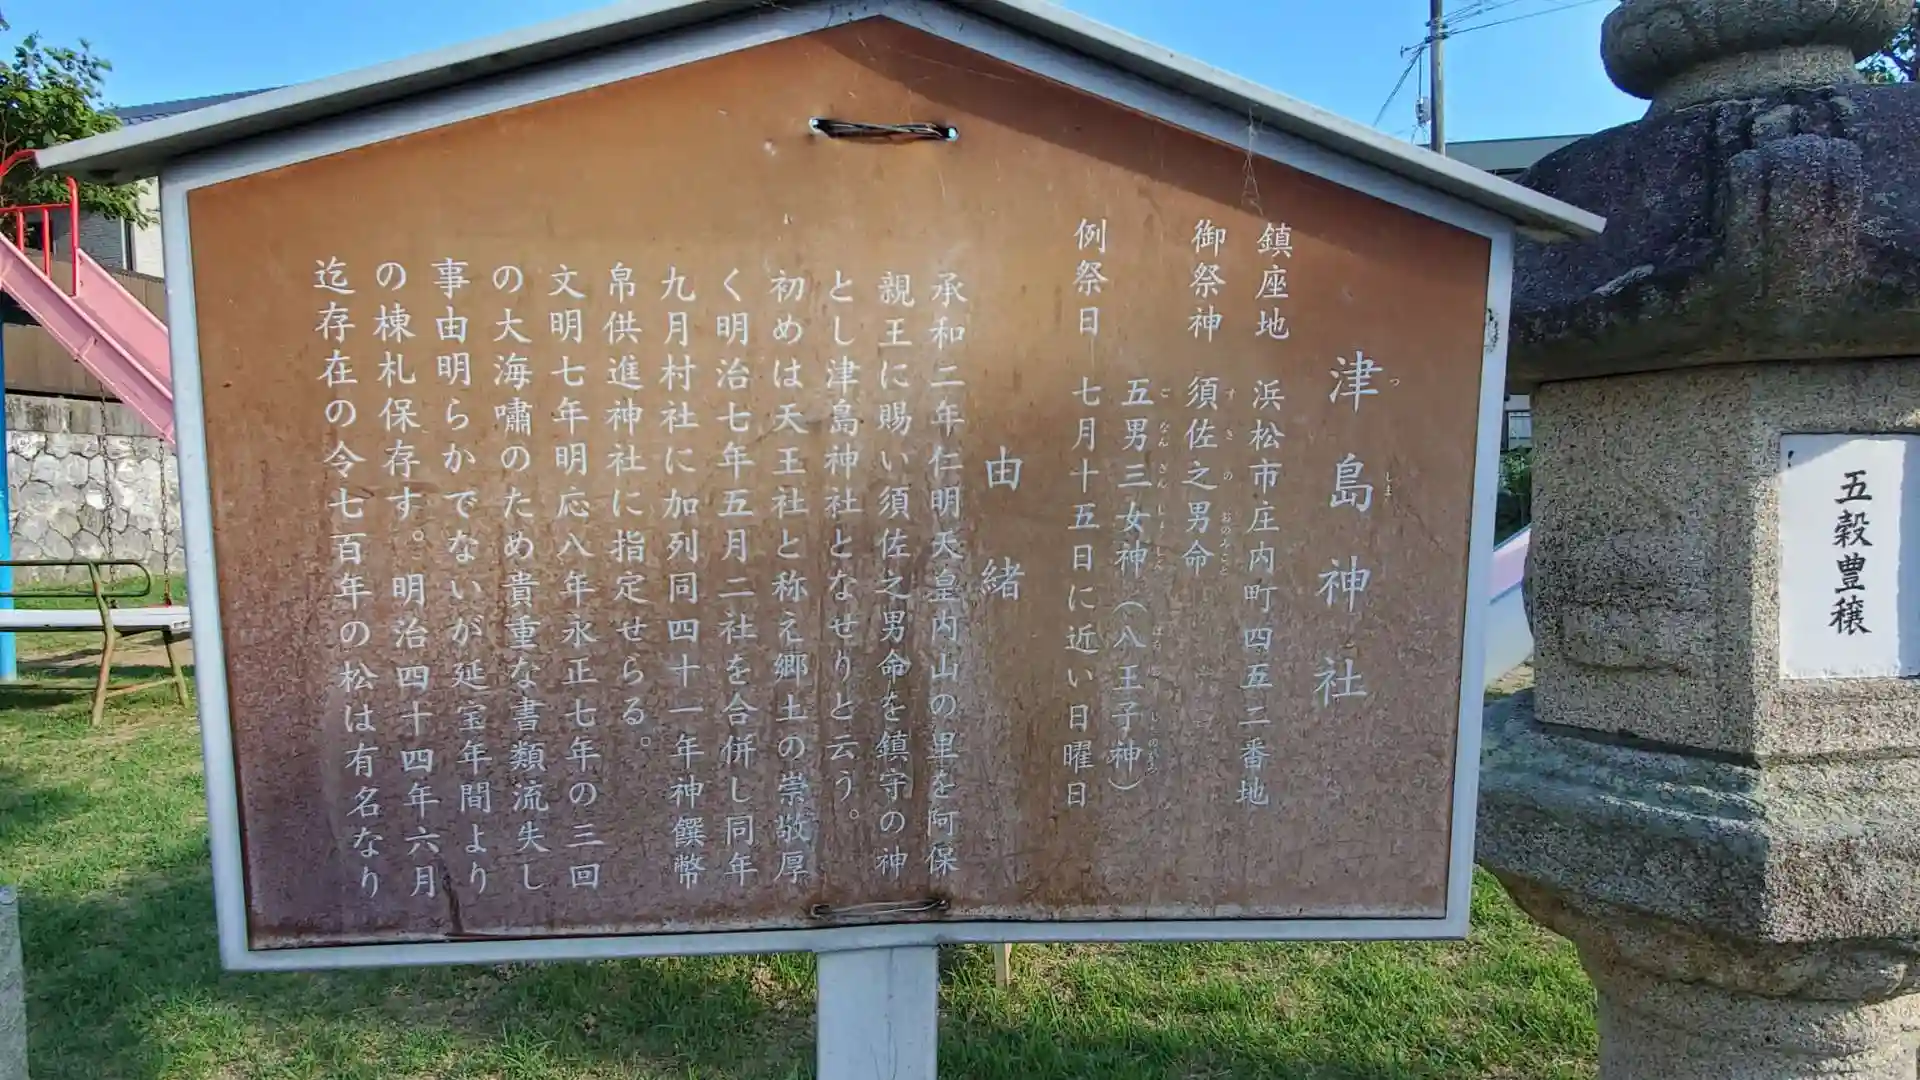 津島神社
つしま
鎮座地 浜松市庄内町四五二番地
御祭神 須佐之男命
五男三女神（八王子神）
例祭日 七月十五日に近い日曜日
由緒
承和二年仁明天皇内山の里を阿保
親王に賜い須佐之男命を鎮守の神
とし津島神社となせりと云う。
初めは天王社と称え郷土の崇敬厚
く明治七年五月二社を合併し同年
九月村社に加列同四十一年神饌幣
帛供進神社に指定せらる。
文明七年明応八年永正七年の三回
の大海嘯のため貴重な書類流失し
事由明らかでないが延宝年間より
の棟札保存す。明治四十四年六月
迄存在の令七百年の松は有名なり
五穀豊穣